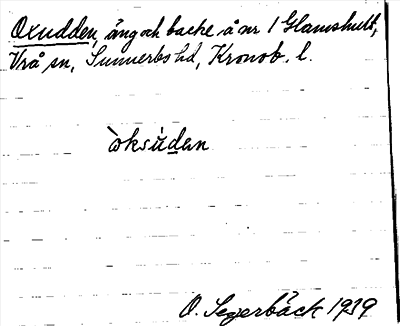 Oxudden, äng och backe å nr 1 Glamshult,
Vrå sn, Sunnerbo hd, Kronob. l.
òksúdan
O. Segerbäck 1939